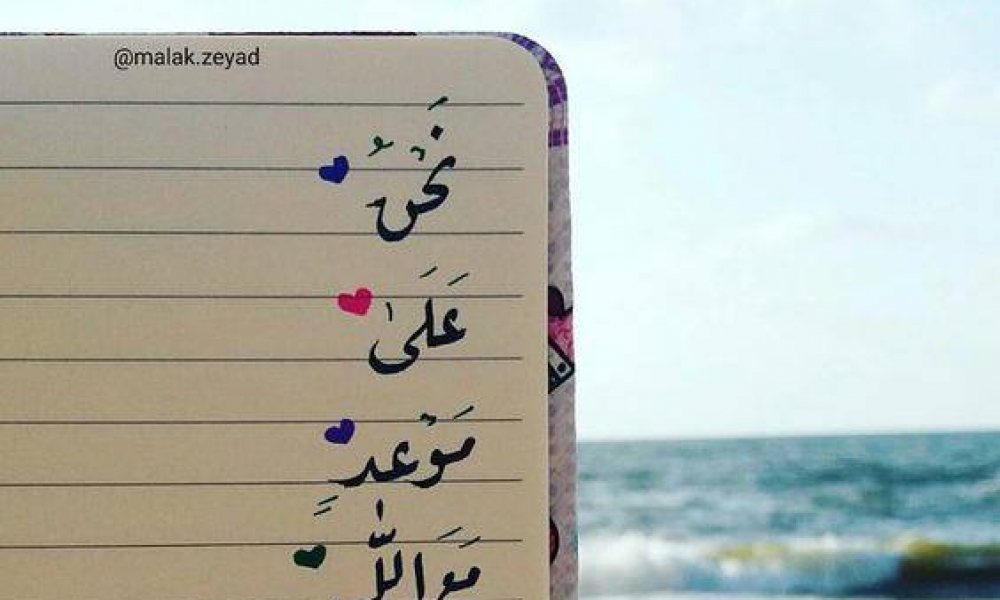 @malak.zeyad
نَحْنُ
عَلَىٰ
مَوْعدٍ
مَع اللّٰ